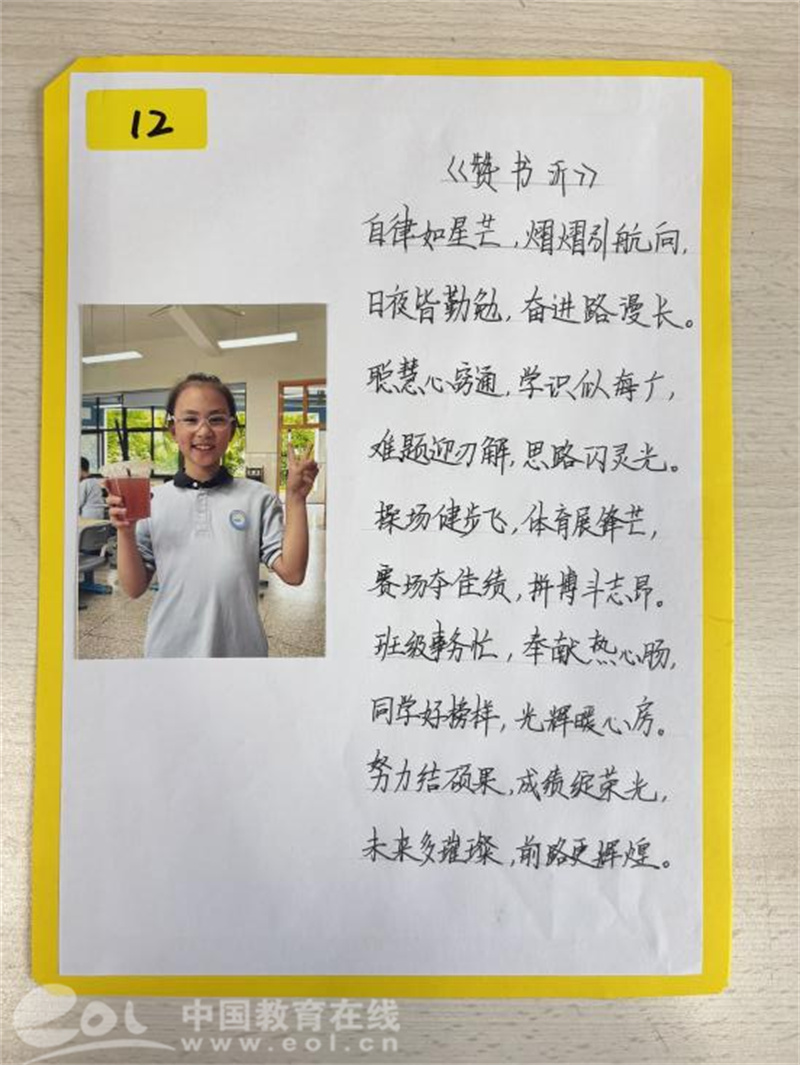 12
《赞书沂》
自律如星芒，熠熠引航向，
日夜皆勤勉，奋进路漫长。
聪慧心窍通，学识似海广，
难题迎刃解，思路闪灵光。
操场健步飞，体育展锋芒，
赛场夺佳绩，拼博斗志昂。
班级事务忙，奉献热心肠，
同学好榜样，光辉暖心房。
努力结硕果，成绩绽荣光，
未来多璀璨，前路更辉煌。
eol 中国教育在线
www.eol.cn